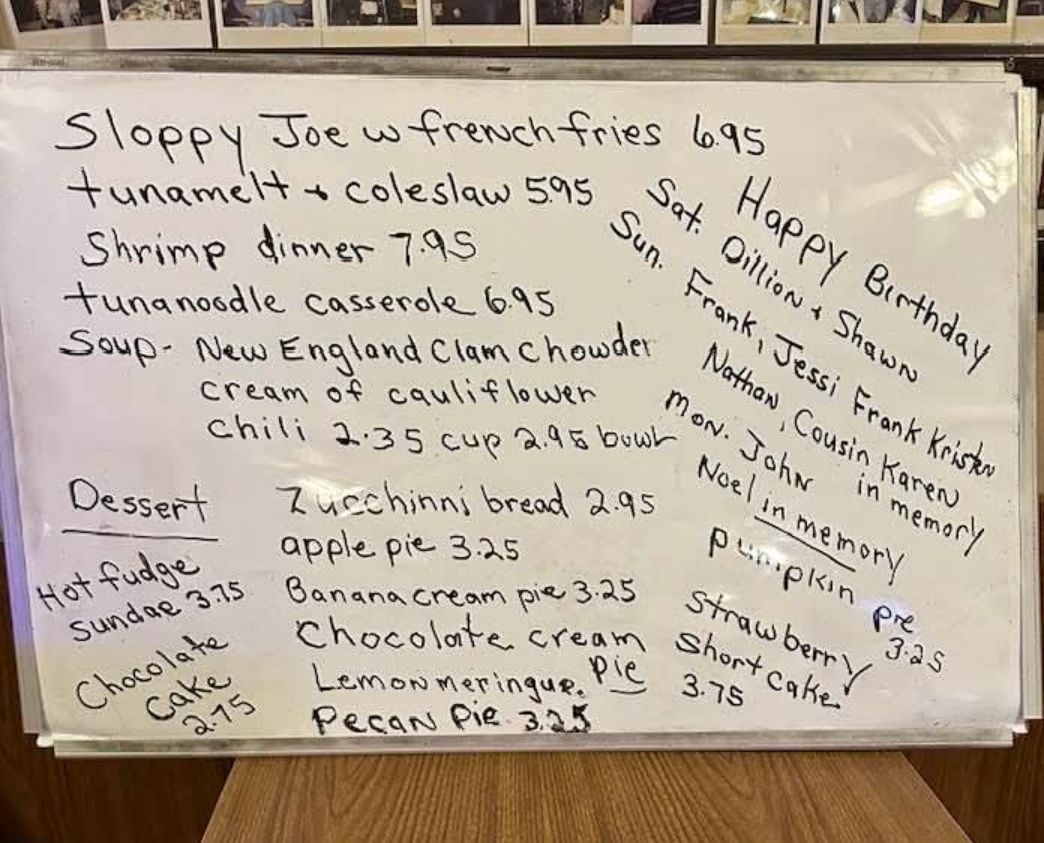 Sloppy Joe w french fries 6.95
tunamelt + coleslaw 5.95
Shrimp dinner 7.95
tuna noodle casserole 6.95
Soup- New England Clam Chowder
cream of cauliflower
chili 2.35 cup 2.95 bowl
Dessert
Hot fudge
Sundae 3.75
Chocolate
Cake
2.75
Zucchinni bread 2.95
apple pie 3.25
Banana cream pie 3.25
Chocolate cream
Lemon meringue. Pie
Pecan Pie 3.25
Happy Birthday
Sat. Dillion + Shawn
Sun. Frank, Jessi Frank Kristen
Nathan, Cousin Karen
in memory
Mon. John
Noel in memory
Pumpkin pie
3.25
Strawberry
Short Cake
3.75